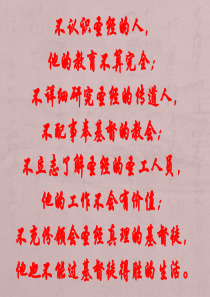 不认识圣经的人，
他的教育不算完全；
不详细研究圣经的传道人，
不配事奉基督的教会；
不立志了解圣经的圣工人员，
他的工作不会有价值；
不充份领会圣经真理的基督徒，
他也不能过基督徒得胜的生活。